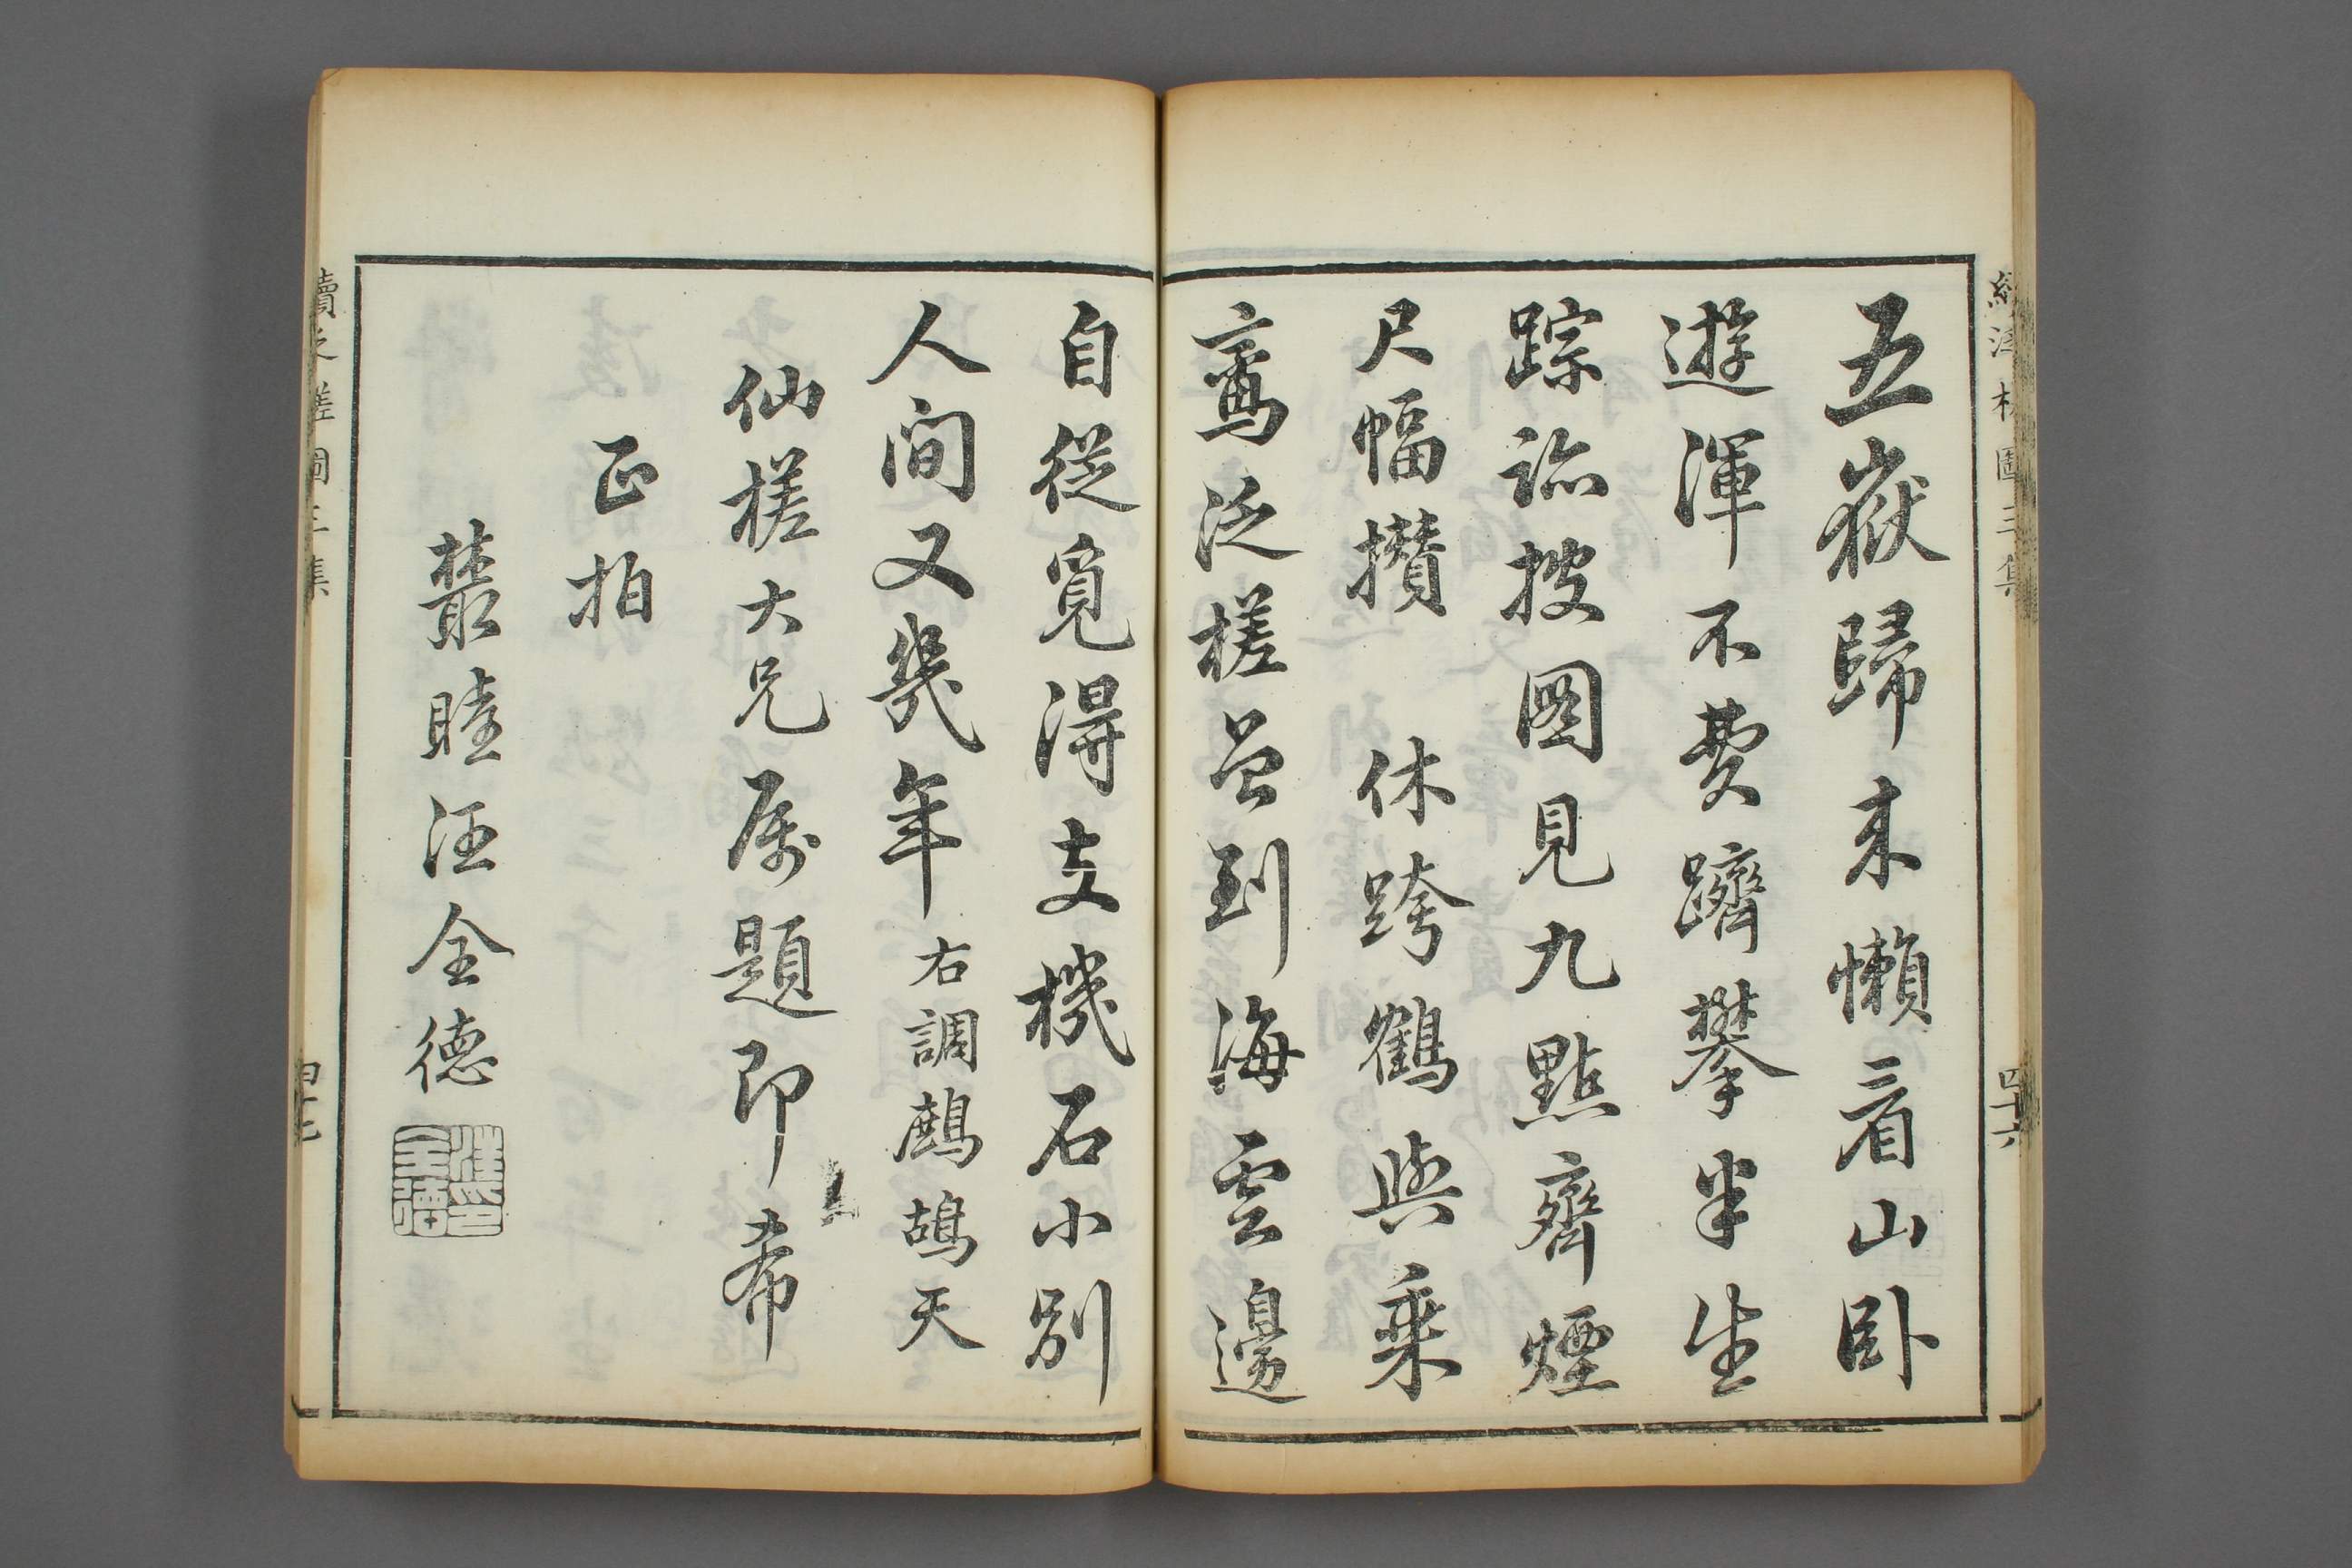 五嶽歸来懶看山卧
遊渾不費躋攀半生
踪跡披圖見九點齊煙
尺幅攢　休跨鶴與乗
鸞泛槎曽到海雲邊
自從覓得支機石小别
人间又幾年右調鷓鴣天
仙槎大兄属題即希
正拍
叢睦汪全德
汪印全德
續泛槎圖三集
四十六
續泛槎圖三集
四十七